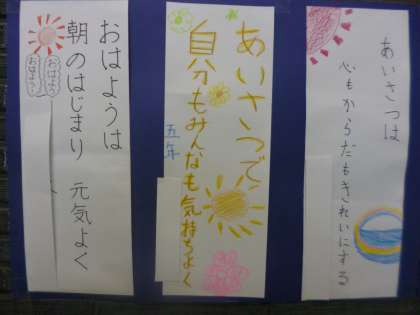 あいさつは
心もからだもきれいにする
あいさつで、
自分もみんなも気持ちよく
五年
おはようは
朝のはじまり 元気よく
おはよう
おはよう